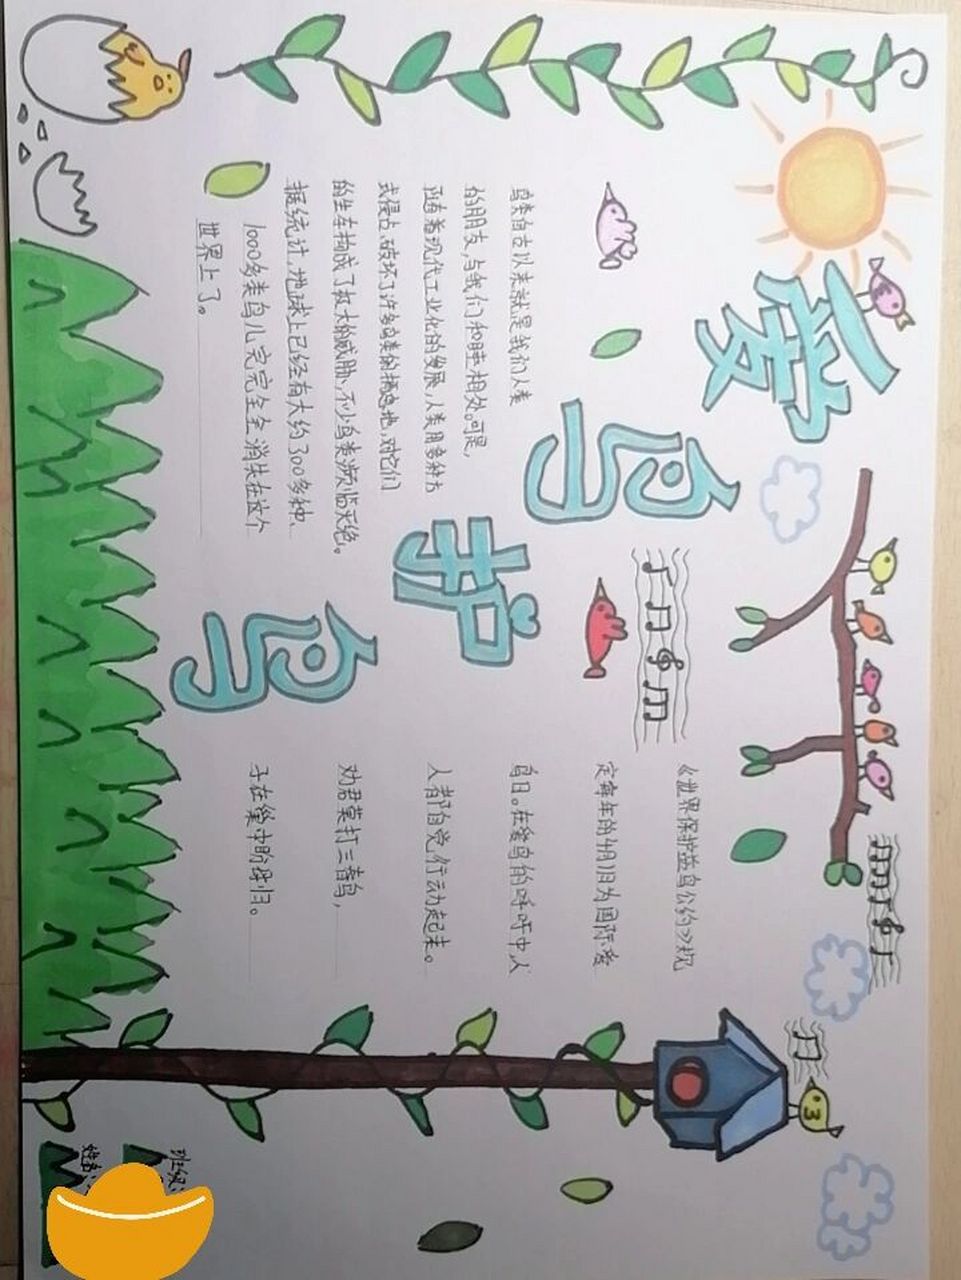 爱鸟护鸟
鸟类自古以来就是我们人类
的朋友,与我们和睦相处。可是,
随着现代工业化的发展,人类用多种方
式侵占、破坏了许多鸟类的栖息地,对它们
的生存构成了极大的威胁,不少鸟类濒临灭绝。
据统计,地球上已经有大约300多种、
1000多类鸟儿完完全全消失在这个
世界上了。
《世界保护益鸟公约》规
定每年的4月1日为国际爱
鸟日。在爱鸟的呼吁中人
人都自觉行动起来。
劝君莫打三春鸟,
子在巢中盼母归。
班级:
姓名: